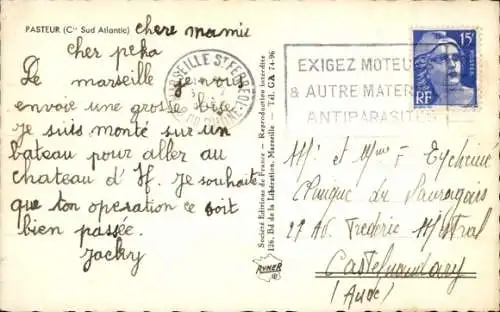 PASTEUR (Cie Sud Atlantic)
chere mamie
cher peka
De marseille je vous
envoie une grosse bise
Je suis monté sur un
bateau pour aller au
chateau d'If. Je souhaite
que ton operation ce soit
bien passée.
Jacky
Société Editions de France - Reproduction interdite
126, Bd de la Libération, Marseille - Tél. GA 74-96
RYNER
MARSEILLE St FERREOL
EXIGEZ MOTEU
& AUTRE MATER
ANTIPARASITES
15F
POSTES
RF
Mr et Mme F Eycheine
Clinique du Lauragais
27 Av Frédéric Mistral
Castelnaudary
(Aude)